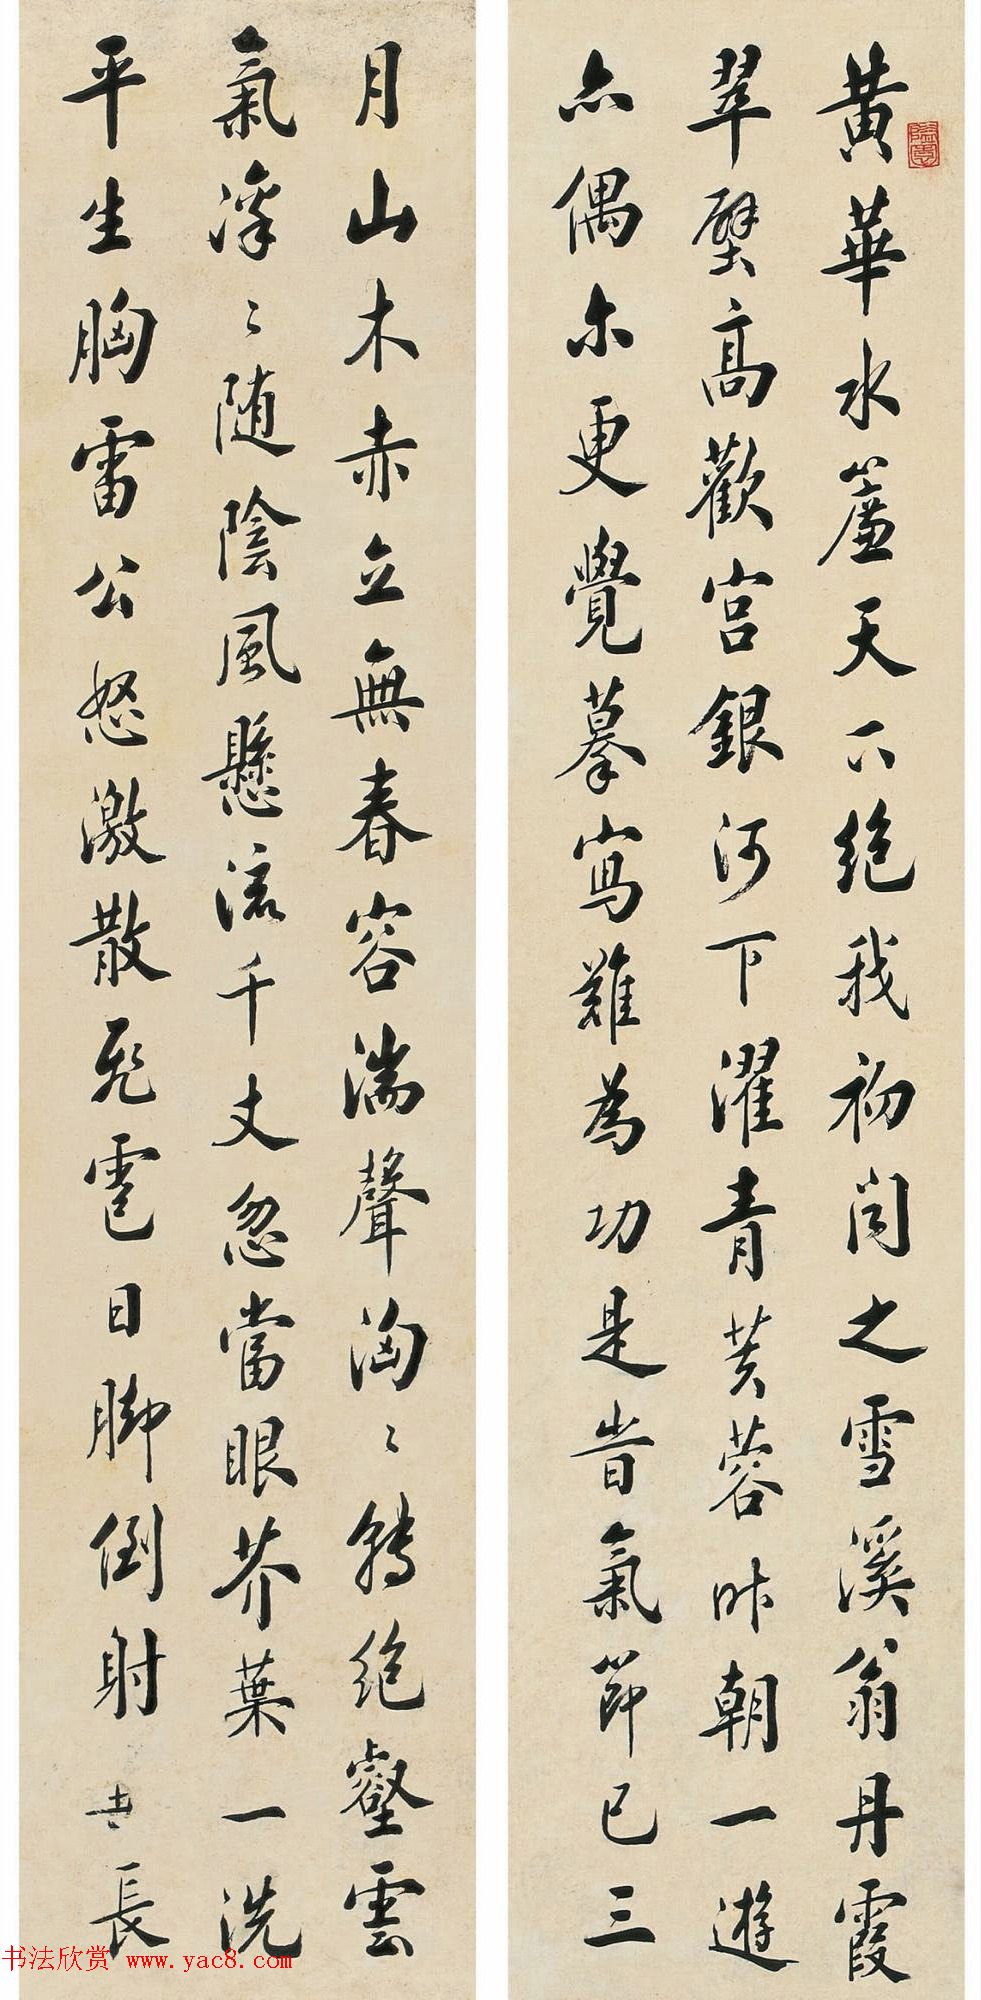 黄華水簾天下絕我初聞之雪溪翁丹霞
翠壁高歡宮銀河下濯青芙蓉昨朝一遊
亦偶尔更覺摹寫難為功是時氣節已三
月山木赤立無春容湍聲洶〻轉絕壑雲
氣凜〻隨陰風懸流千丈忽當眼芥葉一洗
平生胸雷公怒激散飛雹日腳倒射 長
书法欣赏 www.yac8.com